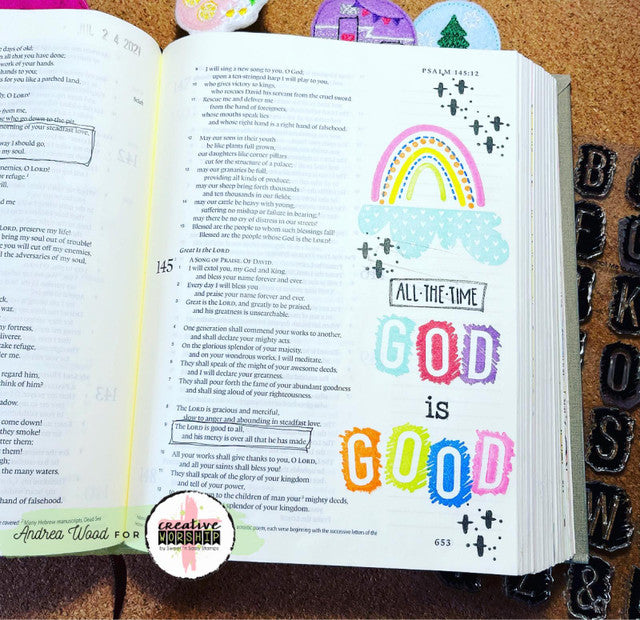 JUL 2 4 2021
days of old;
all that you have done;
work of your hands.
hands to you;
s for you like a parched land.
O LORD!
from me,
who go down to the pit.
morning of your steadfast love,
way I should go,
my soul.
enemies, O LORD!
refuge!
will,
LORD, preserve my life!
bring my soul out of trouble!
you will cut off my enemies,
the adversaries of my soul,
my fortress,
deliverer,
take refuge,
under me.
regard him,
think of him?
shadow.
come down!
they smoke!
scatter them;
them!
high;
the many waters,
hand of falsehood.
PSALM 145:12
9 I will sing a new song to you, O God;
upon a ten-stringed harp I will play to you,
10 who gives victory to kings,
who rescues David his servant from the cruel sword.
11 Rescue me and deliver me
from the hand of foreigners,
whose mouths speak lies
and whose right hand is a right hand of falsehood.
12 May our sons in their youth
be like plants full grown,
our daughters like corner pillars
cut for the structure of a palace;
13 may our granaries be full,
providing all kinds of produce;
may our sheep bring forth thousands
and ten thousands in our fields;
14 may our cattle be heavy with young,
suffering no mishap or failure in bearing;
may there be no cry of distress in our streets!
15 Blessed are the people to whom such blessings fall!
Blessed are the people whose God is the LORD!
Great Is the LORD
A SONG OF PRAISE. OF DAVID.
145 I will extol you, my God and King,
and bless your name forever and ever.
2 Every day I will bless you
and praise your name forever and ever.
3 Great is the LORD, and greatly to be praised,
and his greatness is unsearchable.
4 One generation shall commend your works to another,
and shall declare your mighty acts.
5 On the glorious splendor of your majesty,
and on your wondrous works, I will meditate.
6 They shall speak of the might of your awesome deeds,
and I will declare your greatness.
7 They shall pour forth the fame of your abundant goodness
and shall sing aloud of your righteousness.
8 The LORD is gracious and merciful,
slow to anger and abounding in steadfast love.
9 The LORD is good to all,
and his mercy is over all that he has made.
10 All your works shall give thanks to you, O LORD,
and all your saints shall bless you!
11 They shall speak of the glory of your kingdom
and tell of your power,
to the children of man your mighty deeds,
splendor of your kingdom.
ALL·THE·TIME
GOD
is
GOOD
653
Many Hebrew manuscripts, Dead Sea
acrostic poem, each verse beginning with the successive letters of the
Andrea Wood FOR
creative
WORSHIP
by Sweet 'n Sassy Stamps
B
K
O
S
W
Z
&